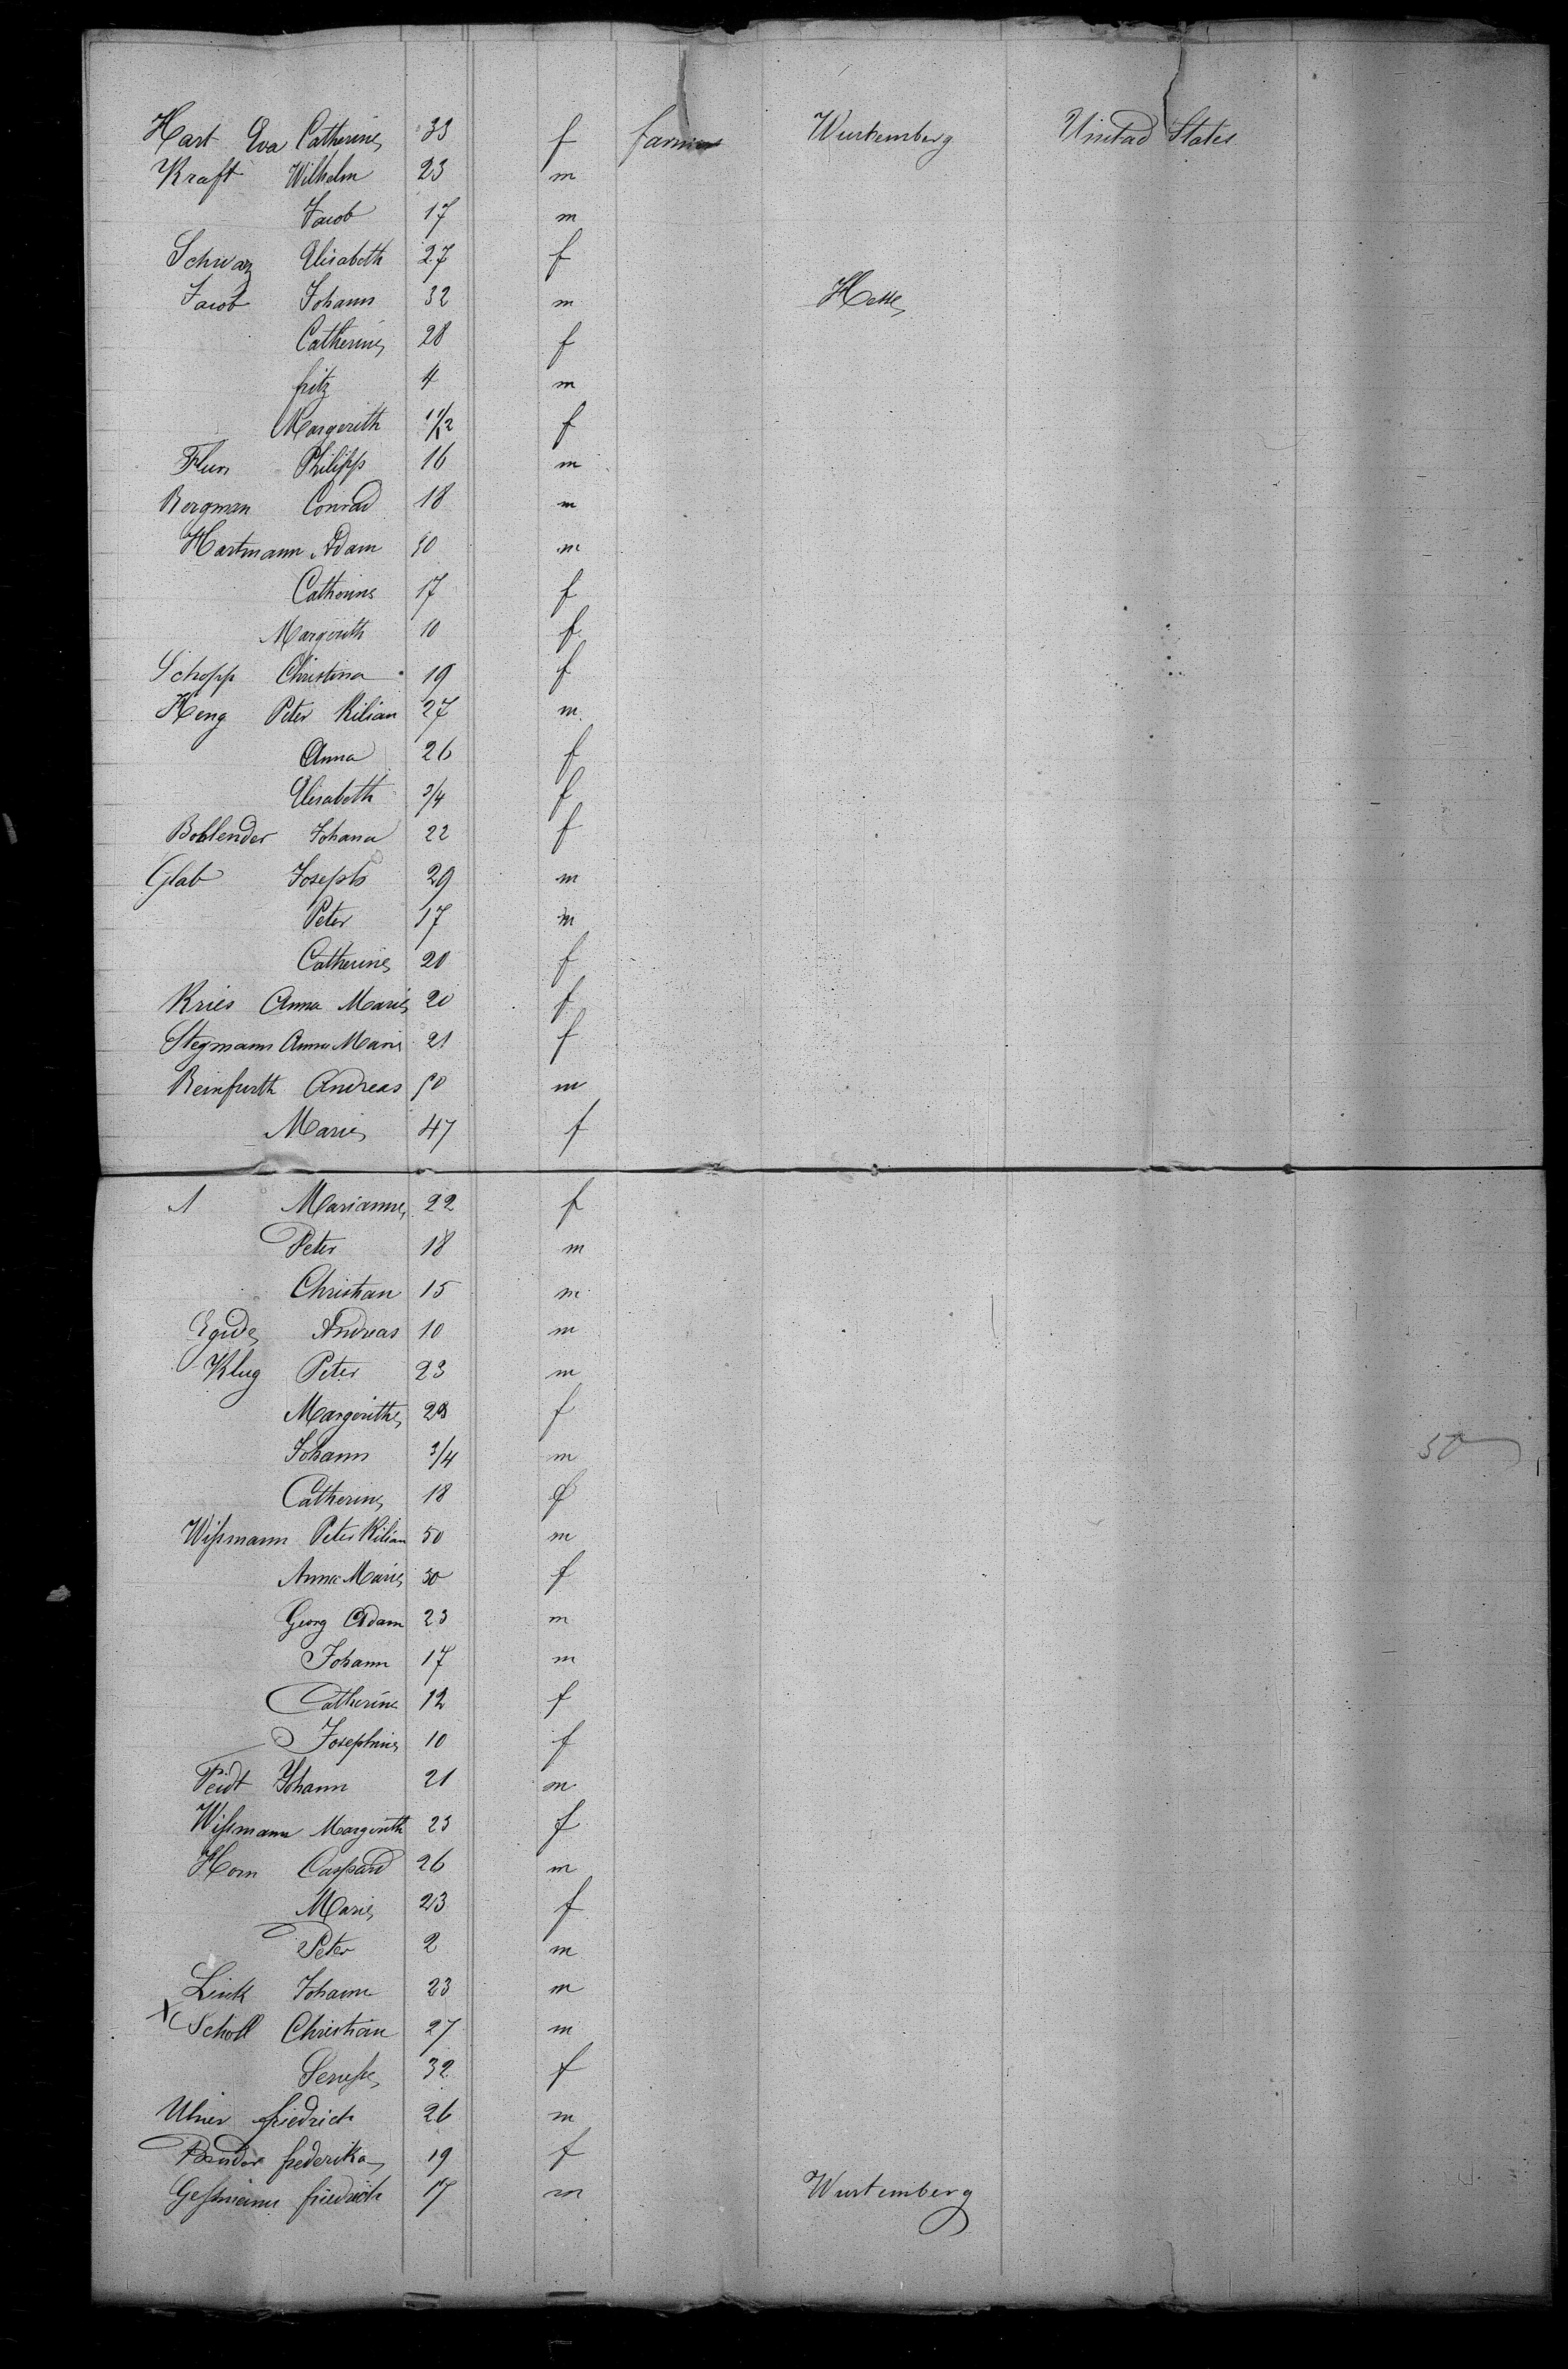 Hart Eva Catherine 33 f farmer Wurtemberg United States
Kraft Wilhelm 23 m
Jacob 17 m
Schwarz Elisabeth 27 f
Jacob Johann 32 m Hesse
Catherine 28 f
fritz 4 m
Margerith 11/12 f
Flun Philipp 16 m
Bergman Conrad 18 m
Hartmann Adam 50 m
Catherine 17 f
Margerith 10 f
Schopp Christina 19 f
Heng Peter Kilian 27 m
Anna 26 f
Elisabeth 3/4 f
Bohlender Johana 22 f
Glab Joseph 29 m
Peter 17 m
Catherine 20 f
Kries Anna Marie 20 f
Stegmann Anna Marie 21 f
Reinfurth Andreas 50 m
Marie 47 f
Marianne 22 f
Peter 18 m
Christian 15 m
Egide Andreas 10 m
Klug Peter 23 m
Margerithe f
Johann 3/4 m
50
Catherine 18 f
Wißmann Peter Kilian 50 m
Anna Marie 50 f
Georg Adam 23 m
Johann 17 m
Catherine 12 f
Josephine 10 f
Peidt Johann 21 m
Wißmann Margerith 23 f
Horn Caspard 26 m
Marie 23 f
Peter 2 m
Link Johann 23 m
X Scholl Christian 27 m
32 f
Ulmer friedrich 26 m
frederika 19 f
Geßmann friedrich 17 m Wurtemberg